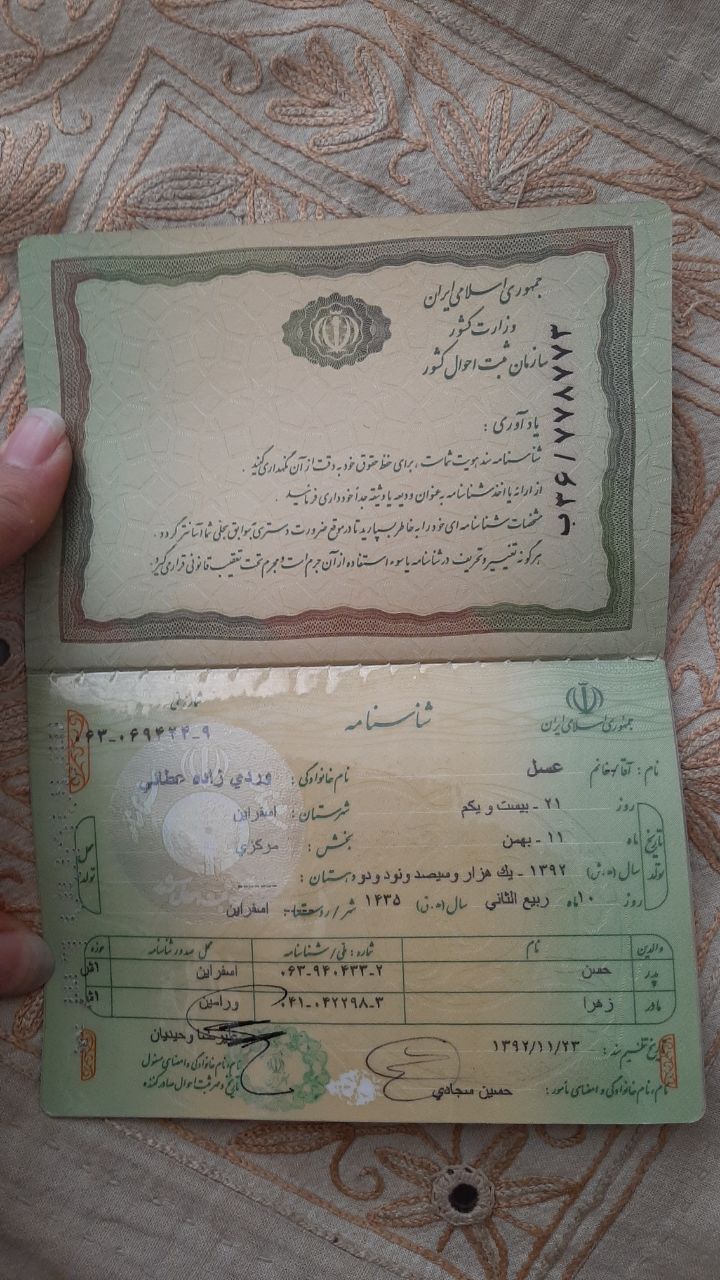 جمهوری اسلامی ایران
وزارت کشور
سازمان ثبت احوال کشور
ب۳۶/۷۷۸۷۷۳
یادآوری :
شناسنامه سند هویت شماست ، برای حفظ حقوق خود به دقت از آن نگهداری کنید .
از ارائه یا اخذ شناسنامه به عنوان ودیعه یا وثیقه جداً خودداری فرمائید .
مشخصات شناسنامه ای خود را به خاطر بسپارید تا در موقع ضرورت دسترسی به سوابق سجلی شما آسانتر گردد .
هرگونه تغییر و تحریف در شناسنامه یا سوء استفاده از آن جرم است و مجرم تحت تعقیب قانونی قرار می گیرد .
جمهوری اسلامی ایران
شناسنامه
شماره ملی
۰۶۳-۰۶۹۴۲۴-۹
نام : آقا/خانم عسل نام خانوادگی : وردي زاده عطائي
تاریخ تولد روز ۲۱ - بيست و يكم شهرستان : اسفراين محل تولد
ماه ۱۱ - بهمن بخش : مركزي
سال (ه.ش) ۱۳۹۲ - يك هزار و سيصد و نود و دو دهستان : -----
روز ۱۰ ماه ربيع الثاني سال (ه.ق) ۱۴۳۵ شهر/روستا : اسفراين
والدین نام شماره : ملی/شناسنامه محل صدور شناسنامه حوزه
پدر حسن ۰۶۳-۹۴۰۴۳۳-۲ اسفراين
مادر زهرا ۰۴۱-۰۴۲۲۹۸-۳ ورامين
تاریخ تنظیم سند : ۱۳۹۲/۱۱/۲۳ عليرضا وحيديان
نام ، نام خانوادگی و امضای مأمور : حسين سجادي نام ، نام خانوادگی و امضای مسئول
تاریخ و مهر ثبت احوال صادر کننده